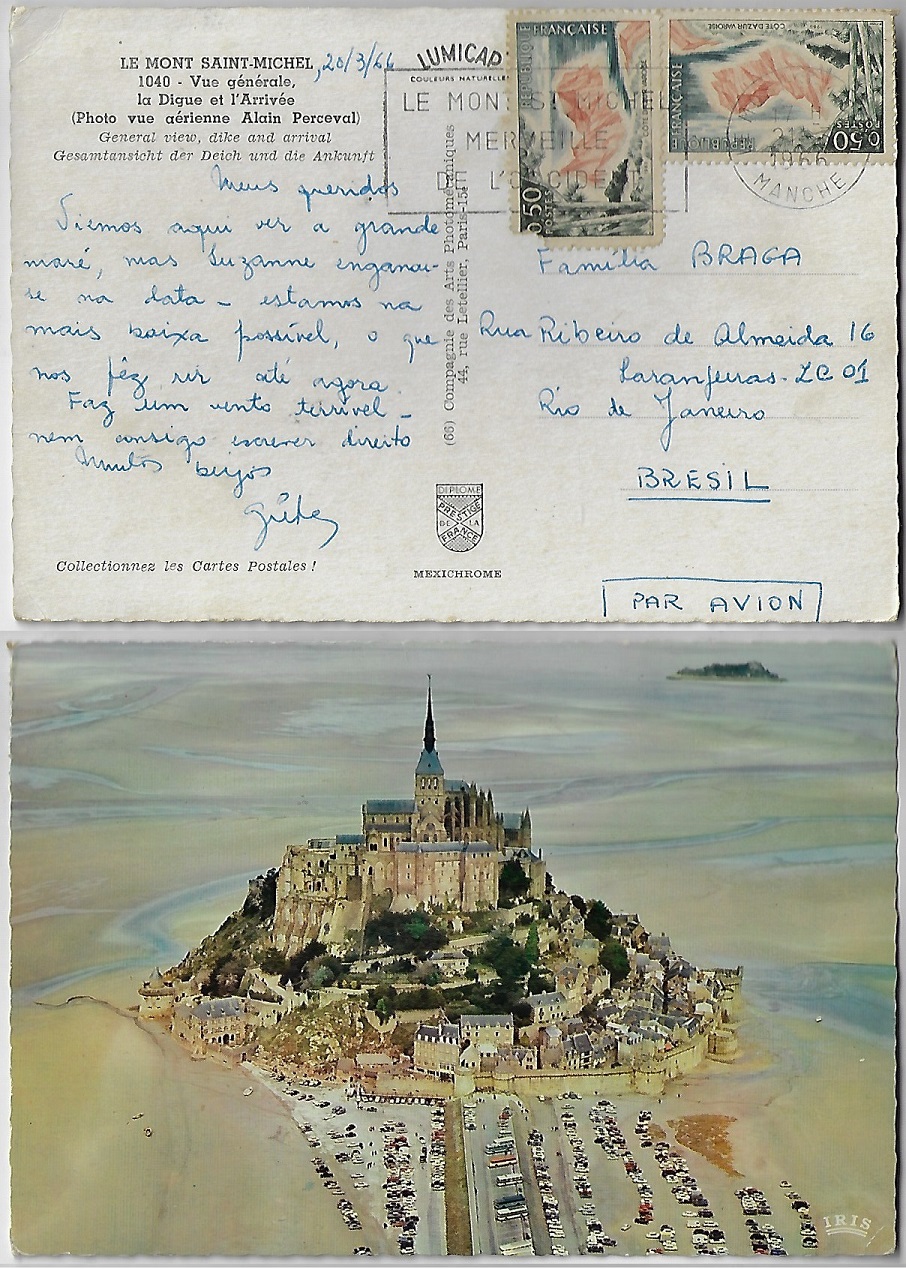 LE MONT SAINT-MICHEL, 20/3/66
1040 - Vue générale,
la Digue et l'Arrivée
(Photo vue aérienne Alain Perceval)
General view, dike and arrival
Gesamtansicht der Deich und die Ankunft
Meus queridos
Viemos aqui ver a grande
maré, mas Suzanne enganou-
se na data - estamos na
mais baixa possível, o que
nos fêz rir até agora
Faz um vento terrível -
nem consigo escrever direito
Muitos beijos
Collectionnez les Cartes Postales !
LUMICAP
COULEURS NATURELLES
(66) Compagnie des Arts Photomécaniques
44, rue Letellier, Paris-15
DIPLOME
PRESTIGE
DE LA
FRANCE
MEXICHROME
LE MONT ST MICHEL
MERVEILLE
DE L'OCCIDENT
RÉPUBLIQUE FRANÇAISE
0,50
POSTES
RÉPUBLIQUE FRANÇAISE
CÔTE D'AZUR VAROISE
0,50
POSTES
17 H
21 - 3
1966
MANCHE
Família BRAGA
Rua Ribeiro de Almeida 16
Laranjeiras - ZC 01
Rio de Janeiro
BRESIL
PAR AVION
IRIS